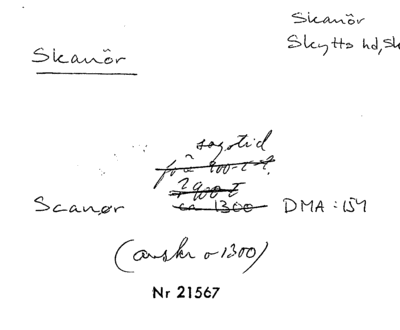 Skanör
Skytts hd, Sk
Skanör
sagotid
från 900-t
? 900 t
ca 1300
Scanør DMA:154
(avskr o 1300)
Nr 21567